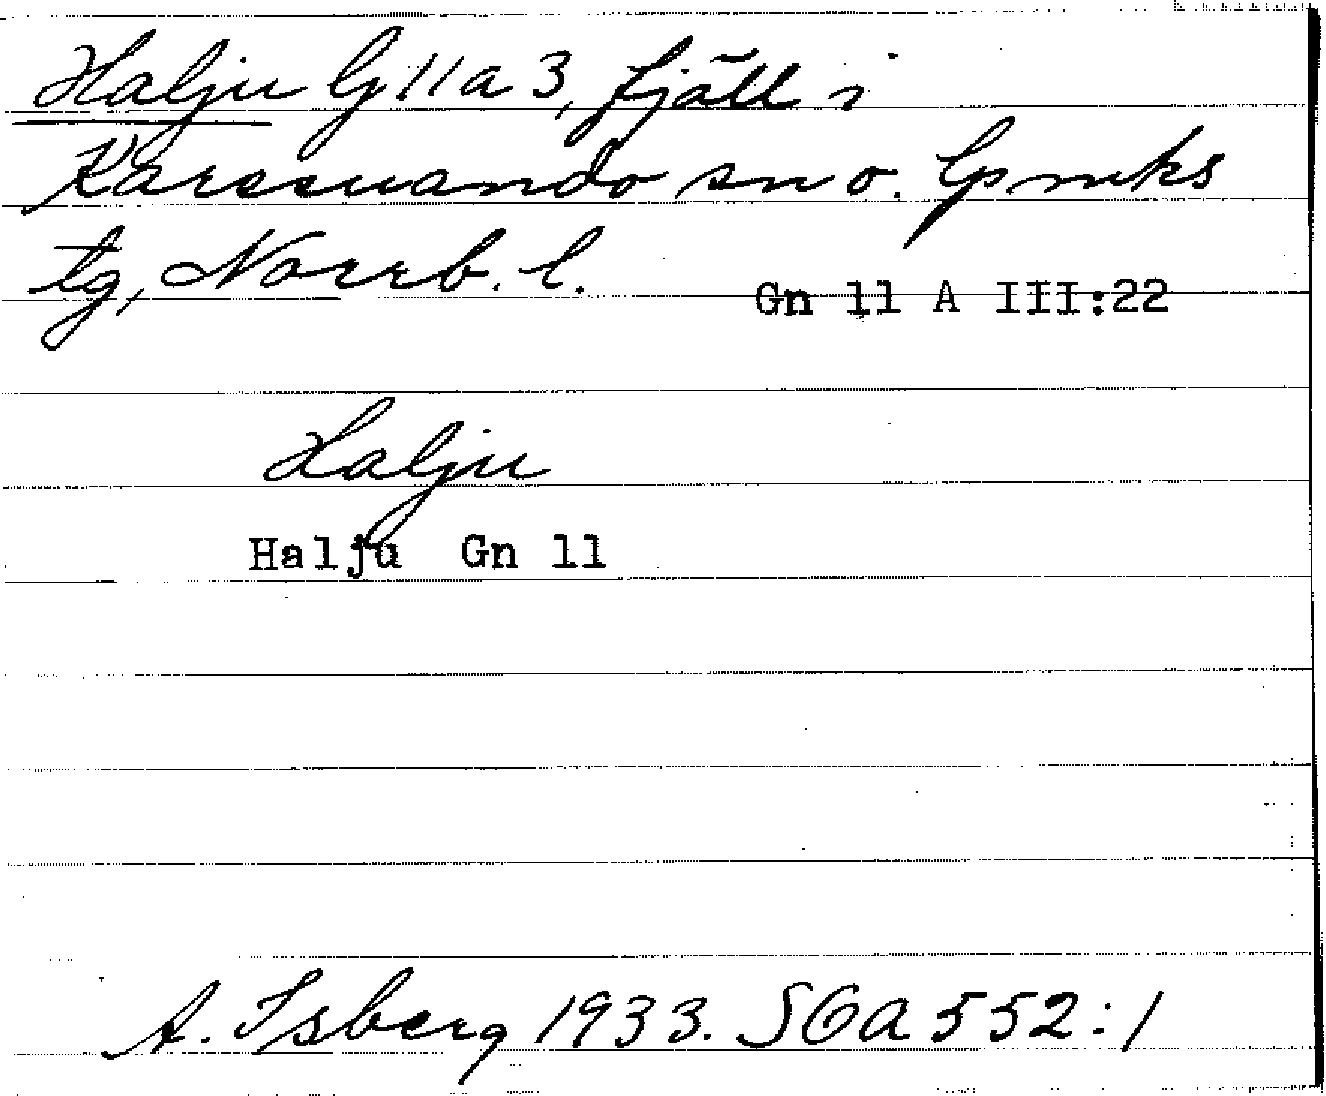 Halju G 11 a 3, fjäll i
Karesuando sn o. lpmks
tg, Norrb. l.
Gn 11 A III:22
Halju
Halju Gn 11
A. Isberg 1933. SOA 552:1